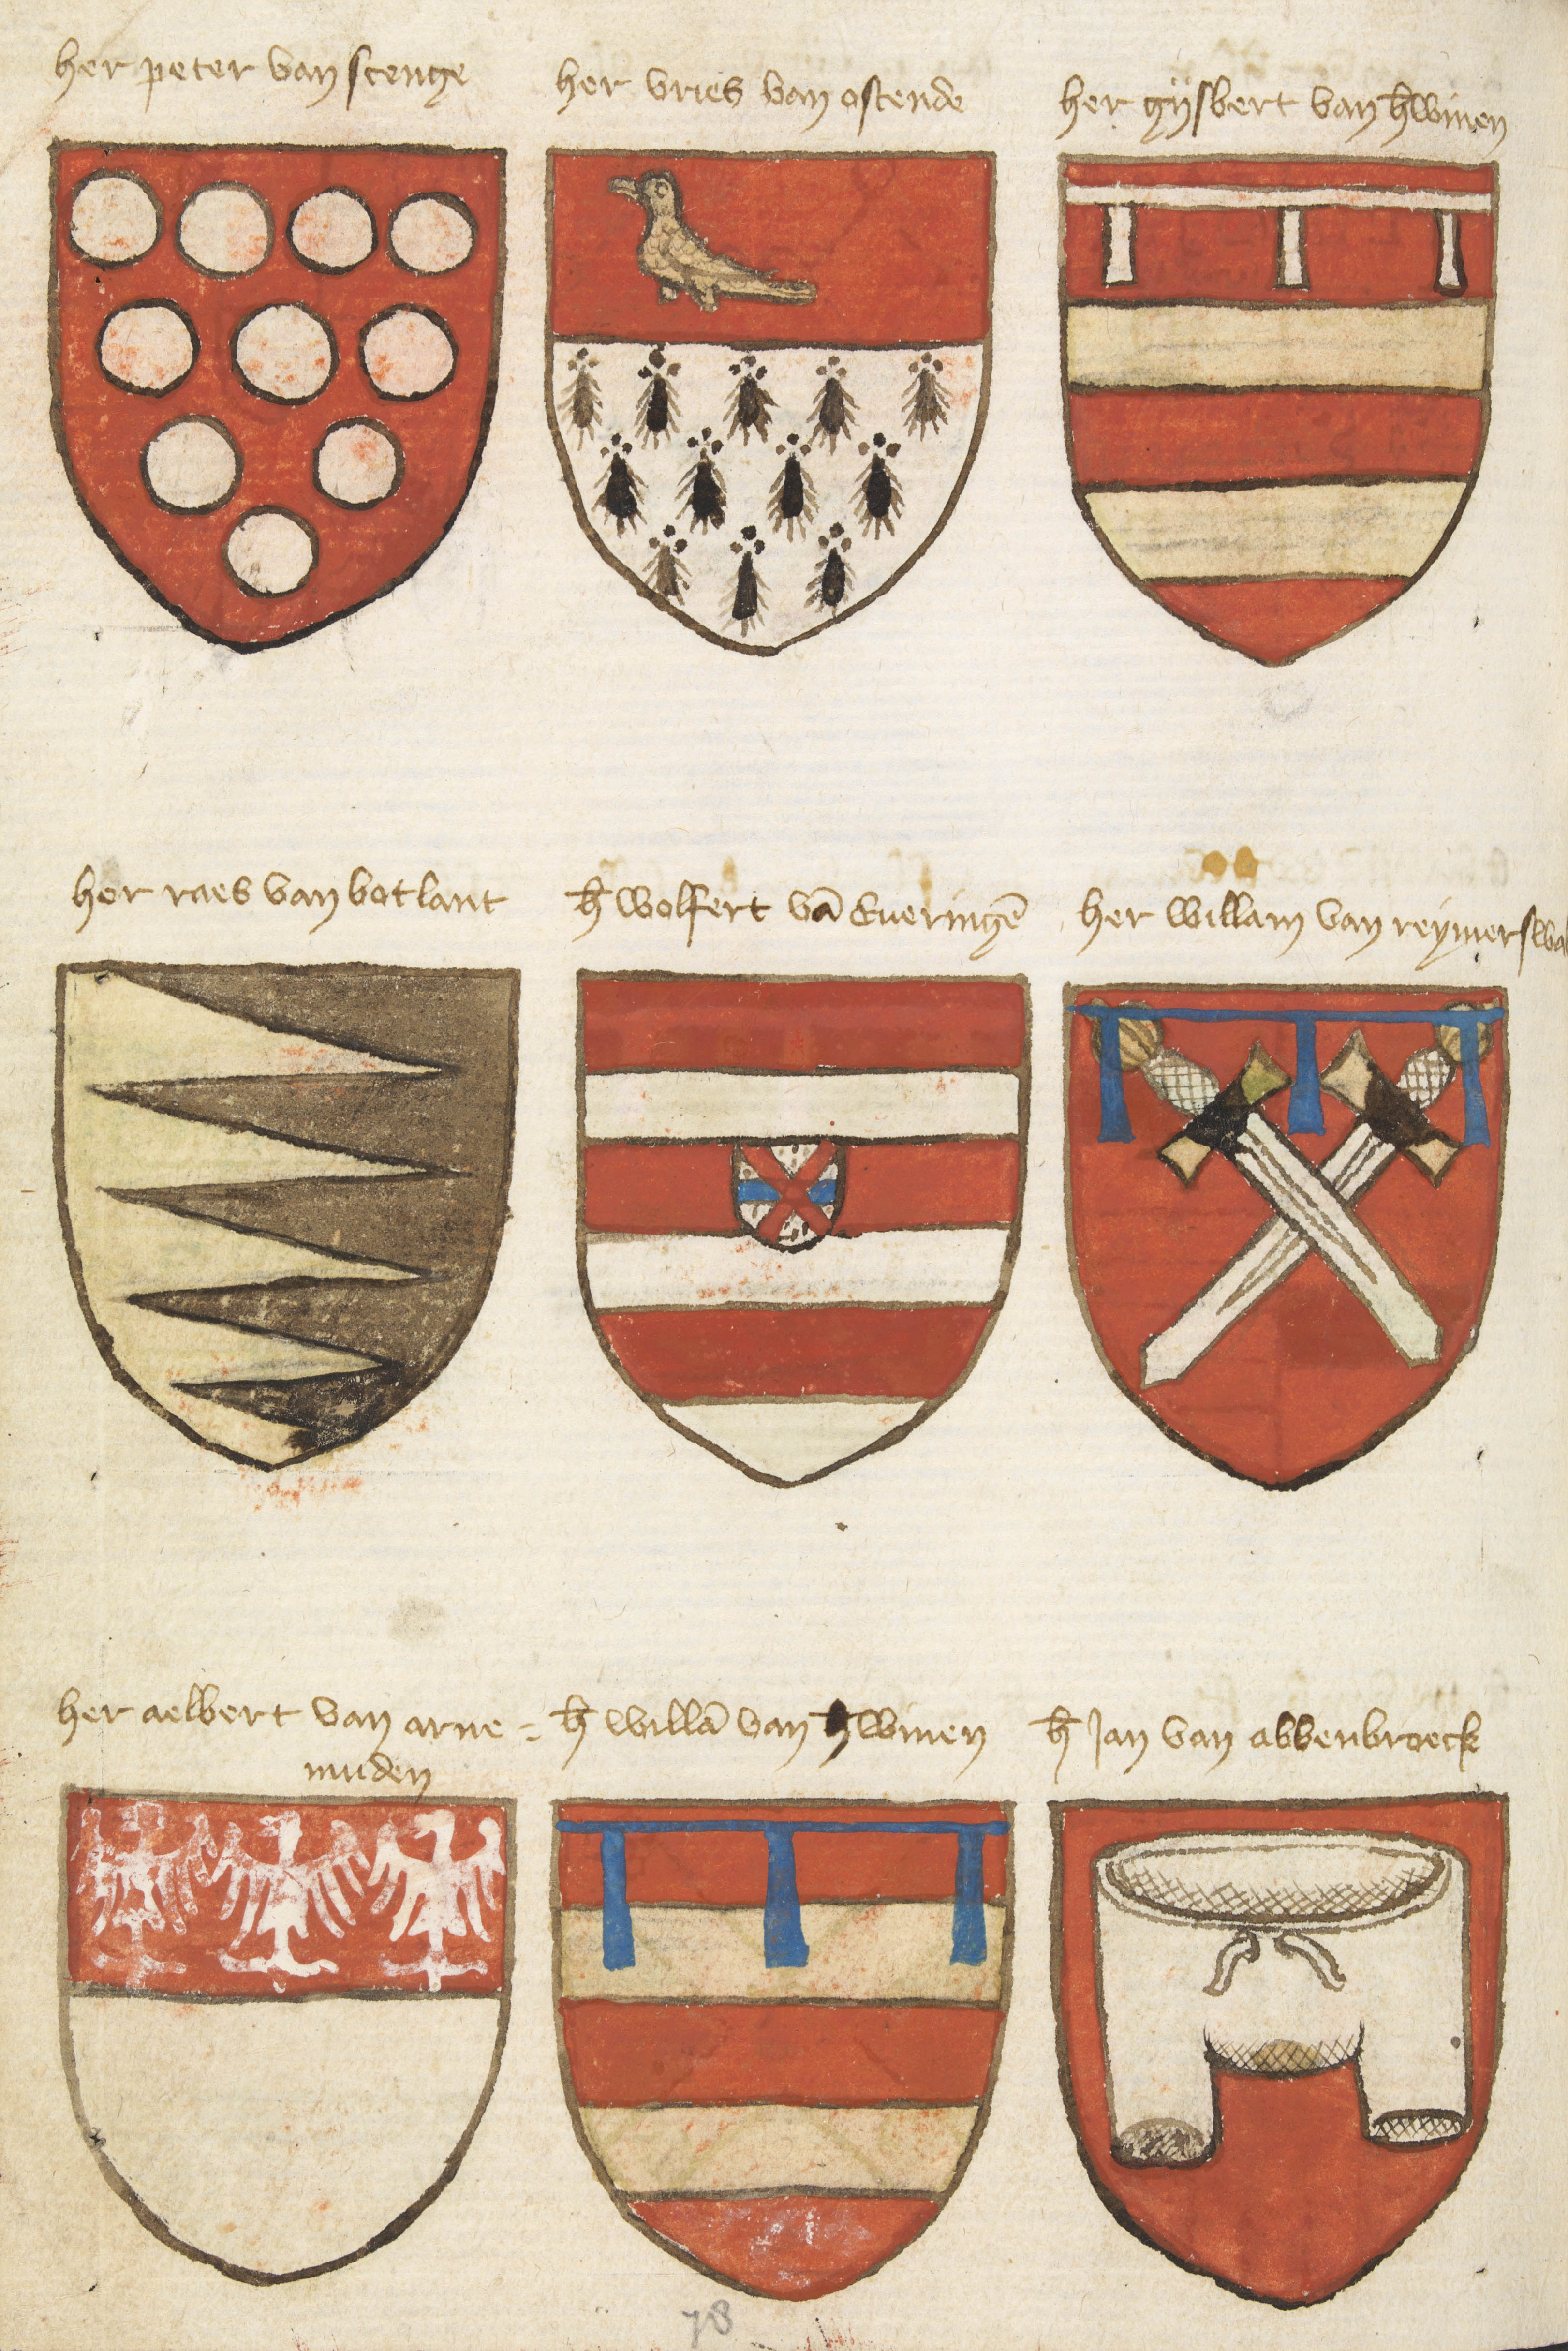 her peter van scenge
her vries van ostende
her gijsbert van h̄winen
her raes van botlant
h̄ wolfert vā Everingē
her willam van reymerswa
her aelbert van arne =
muden
h̄ willā van h̄winen
h̄ Jan van abbenbroeck
78